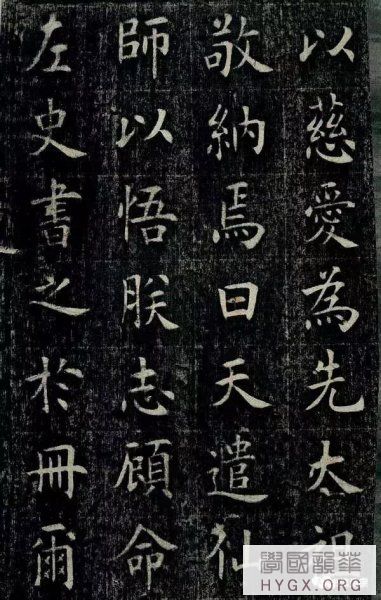 以慈愛為先太祖
敬納焉曰天遣仙
師以悟朕志顧命
左史書之於冊爾
華韻國學
HYGX.ORG